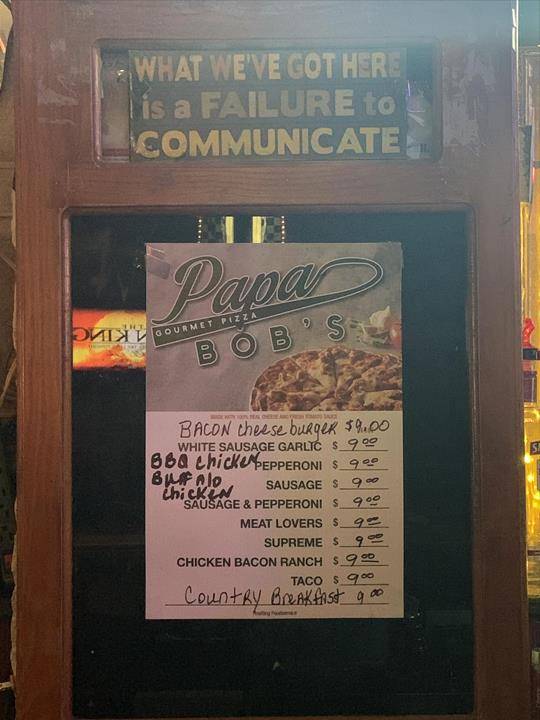 WHAT WE'VE GOT HERE
is a FAILURE to
COMMUNICATE
Papa
GOURMET PIZZA
BOB'S
MADE WITH 100% REAL CHEESE AND FRESH TOMATO SAUCE
BACON cheese burger $9.00
WHITE SAUSAGE GARLIC $ 9 00
BBQ chicken PEPPERONI $ 9 00
Buffalo chicken
SAUSAGE $ 9 00
SAUSAGE & PEPPERONI $ 9 00
MEAT LOVERS $ 9 00
SUPREME $ 9 00
CHICKEN BACON RANCH $ 9 00
TACO $ 9 00
Country Breakfast 9 00
THE
KING